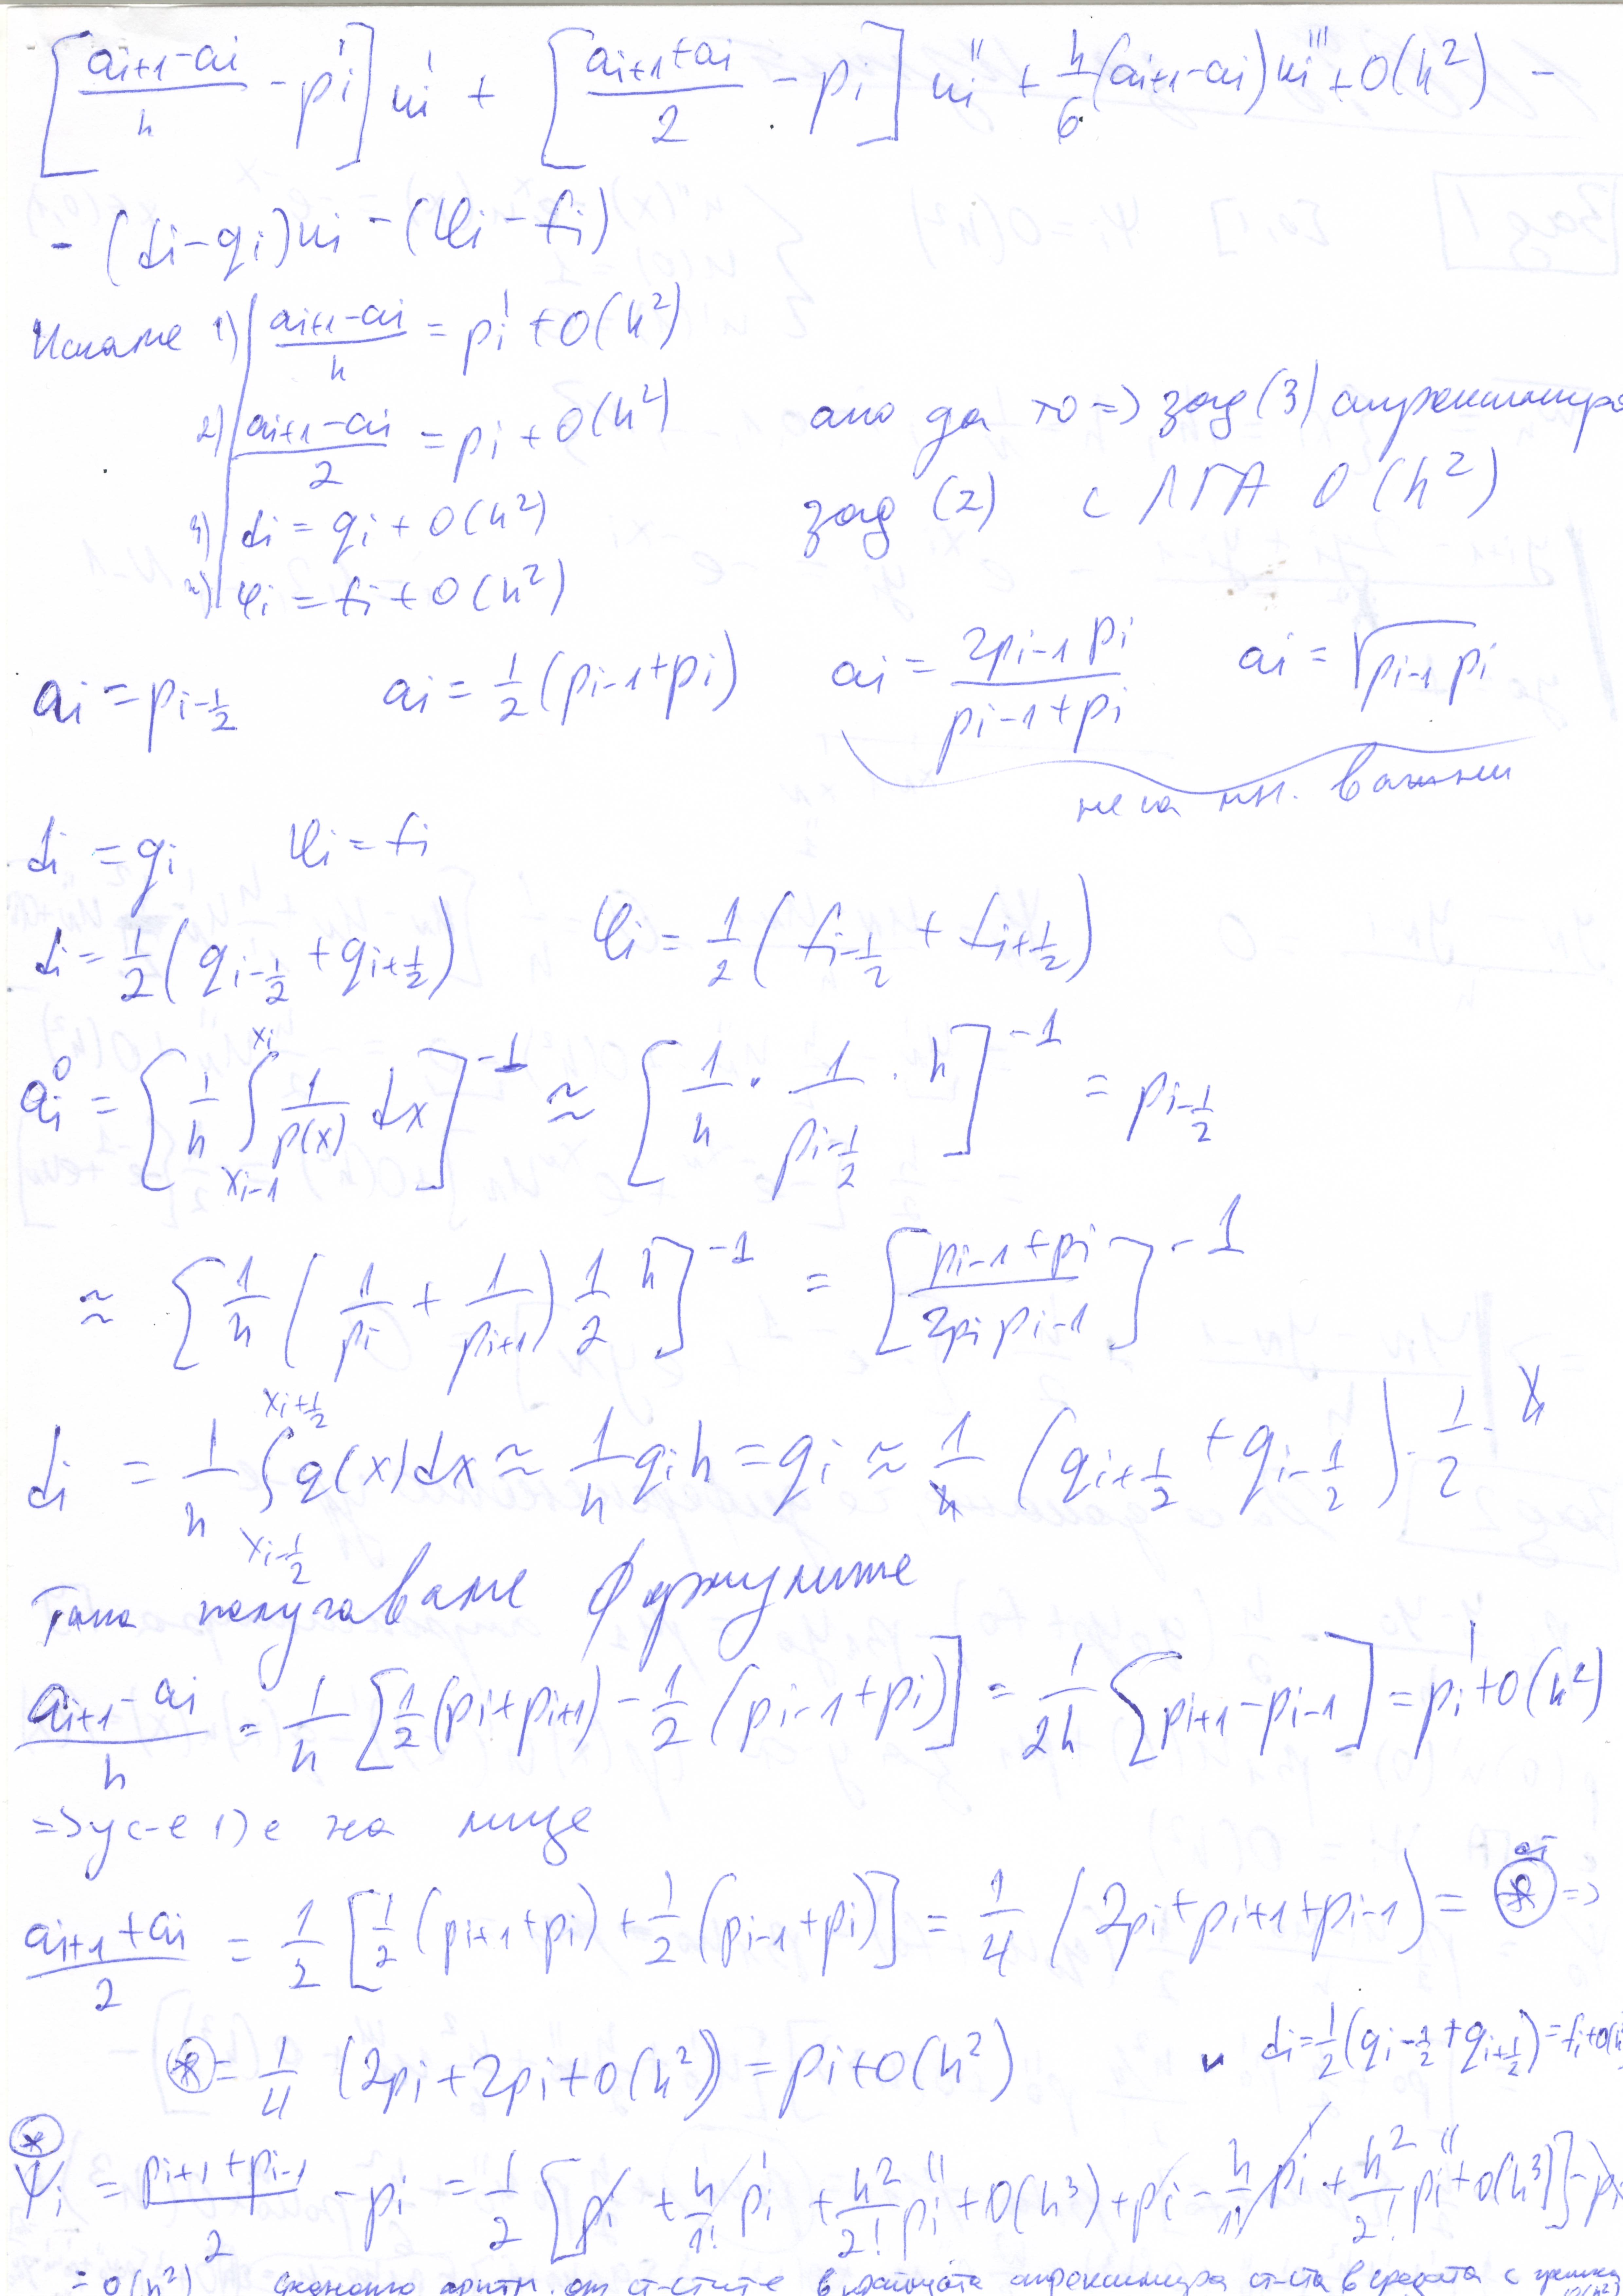 [(a_{i+1} - a_i)/h - p_i'] u_i' + [(a_{i+1} + a_i)/2 - p_i] u_i'' + h/6 (a_{i+1} - a_i) u_i''' + O(h²) -
- (d_i - q_i) u_i - (φ_i - f_i)
Искаме 1) (a_{i+1} - a_i)/h = p_i' + O(h²)
2) (a_{i+1} - a_i)/2 = p_i + O(h²) ако да то => зад (3) апроксимира
3) d_i = q_i + O(h²) зад (2) с ЛГА O(h²)
4) φ_i = f_i + O(h²)
a_i = p_{i-1/2} a_i = 1/2 (p_{i-1} + p_i) a_i = 2p_{i-1} p_i / (p_{i-1} + p_i) a_i = √(p_{i-1} p_i)
не са мн. важни
d_i = q_i φ_i = f_i
d_i = 1/2 (q_{i-1/2} + q_{i+1/2}) φ_i = 1/2 (f_{i-1/2} + f_{i+1/2})
a_i^0 = [1/h ∫_{x_{i-1}}^{x_i} 1/p(x) dx]^{-1} ≈ [1/h · 1/p_{i-1/2} · h]^{-1} = p_{i-1/2}
≈ [1/h (1/p_i + 1/p_{i+1}) 1/2 h]^{-1} = [(p_{i-1} + p_i)/(2p_i p_{i-1})]^{-1}
d_i = 1/h ∫_{x_{i-1/2}}^{x_{i+1/2}} q(x) dx ≈ 1/h q_i h = q_i ≈ 1/h (q_{i+1/2} + q_{i-1/2}) · 1/2 · h
Така получаваме формулите
(a_{i+1} - a_i)/h = 1/h [1/2 (p_i + p_{i+1}) - 1/2 (p_{i-1} + p_i)] = 1/2h [p_{i+1} - p_{i-1}] = p_i' + O(h²)
=> ус-е 1) е на лице
(a_{i+1} + a_i)/2 = 1/2 [1/2 (p_{i+1} + p_i) + 1/2 (p_{i-1} + p_i)] = 1/4 (2p_i + p_{i+1} + p_{i-1}) = ⊛ =>
⊛ = 1/4 (2p_i + 2p_i + O(h²)) = p_i + O(h²) и d_i = 1/2 (q_{i-1/2} + q_{i+1/2}) = f_i + O(h
⊛
Ψ_i = (p_{i+1} + p_{i-1})/2 - p_i = 1/2 [p_i + h/1! p_i' + h²/2! p_i'' + O(h³) + p_i - h/1! p_i' + h²/2! p_i'' + O(h³)] - p_i
= O(h²) аритм. от ст-стите в краищата апроксимира ст-ста в средата с грешка